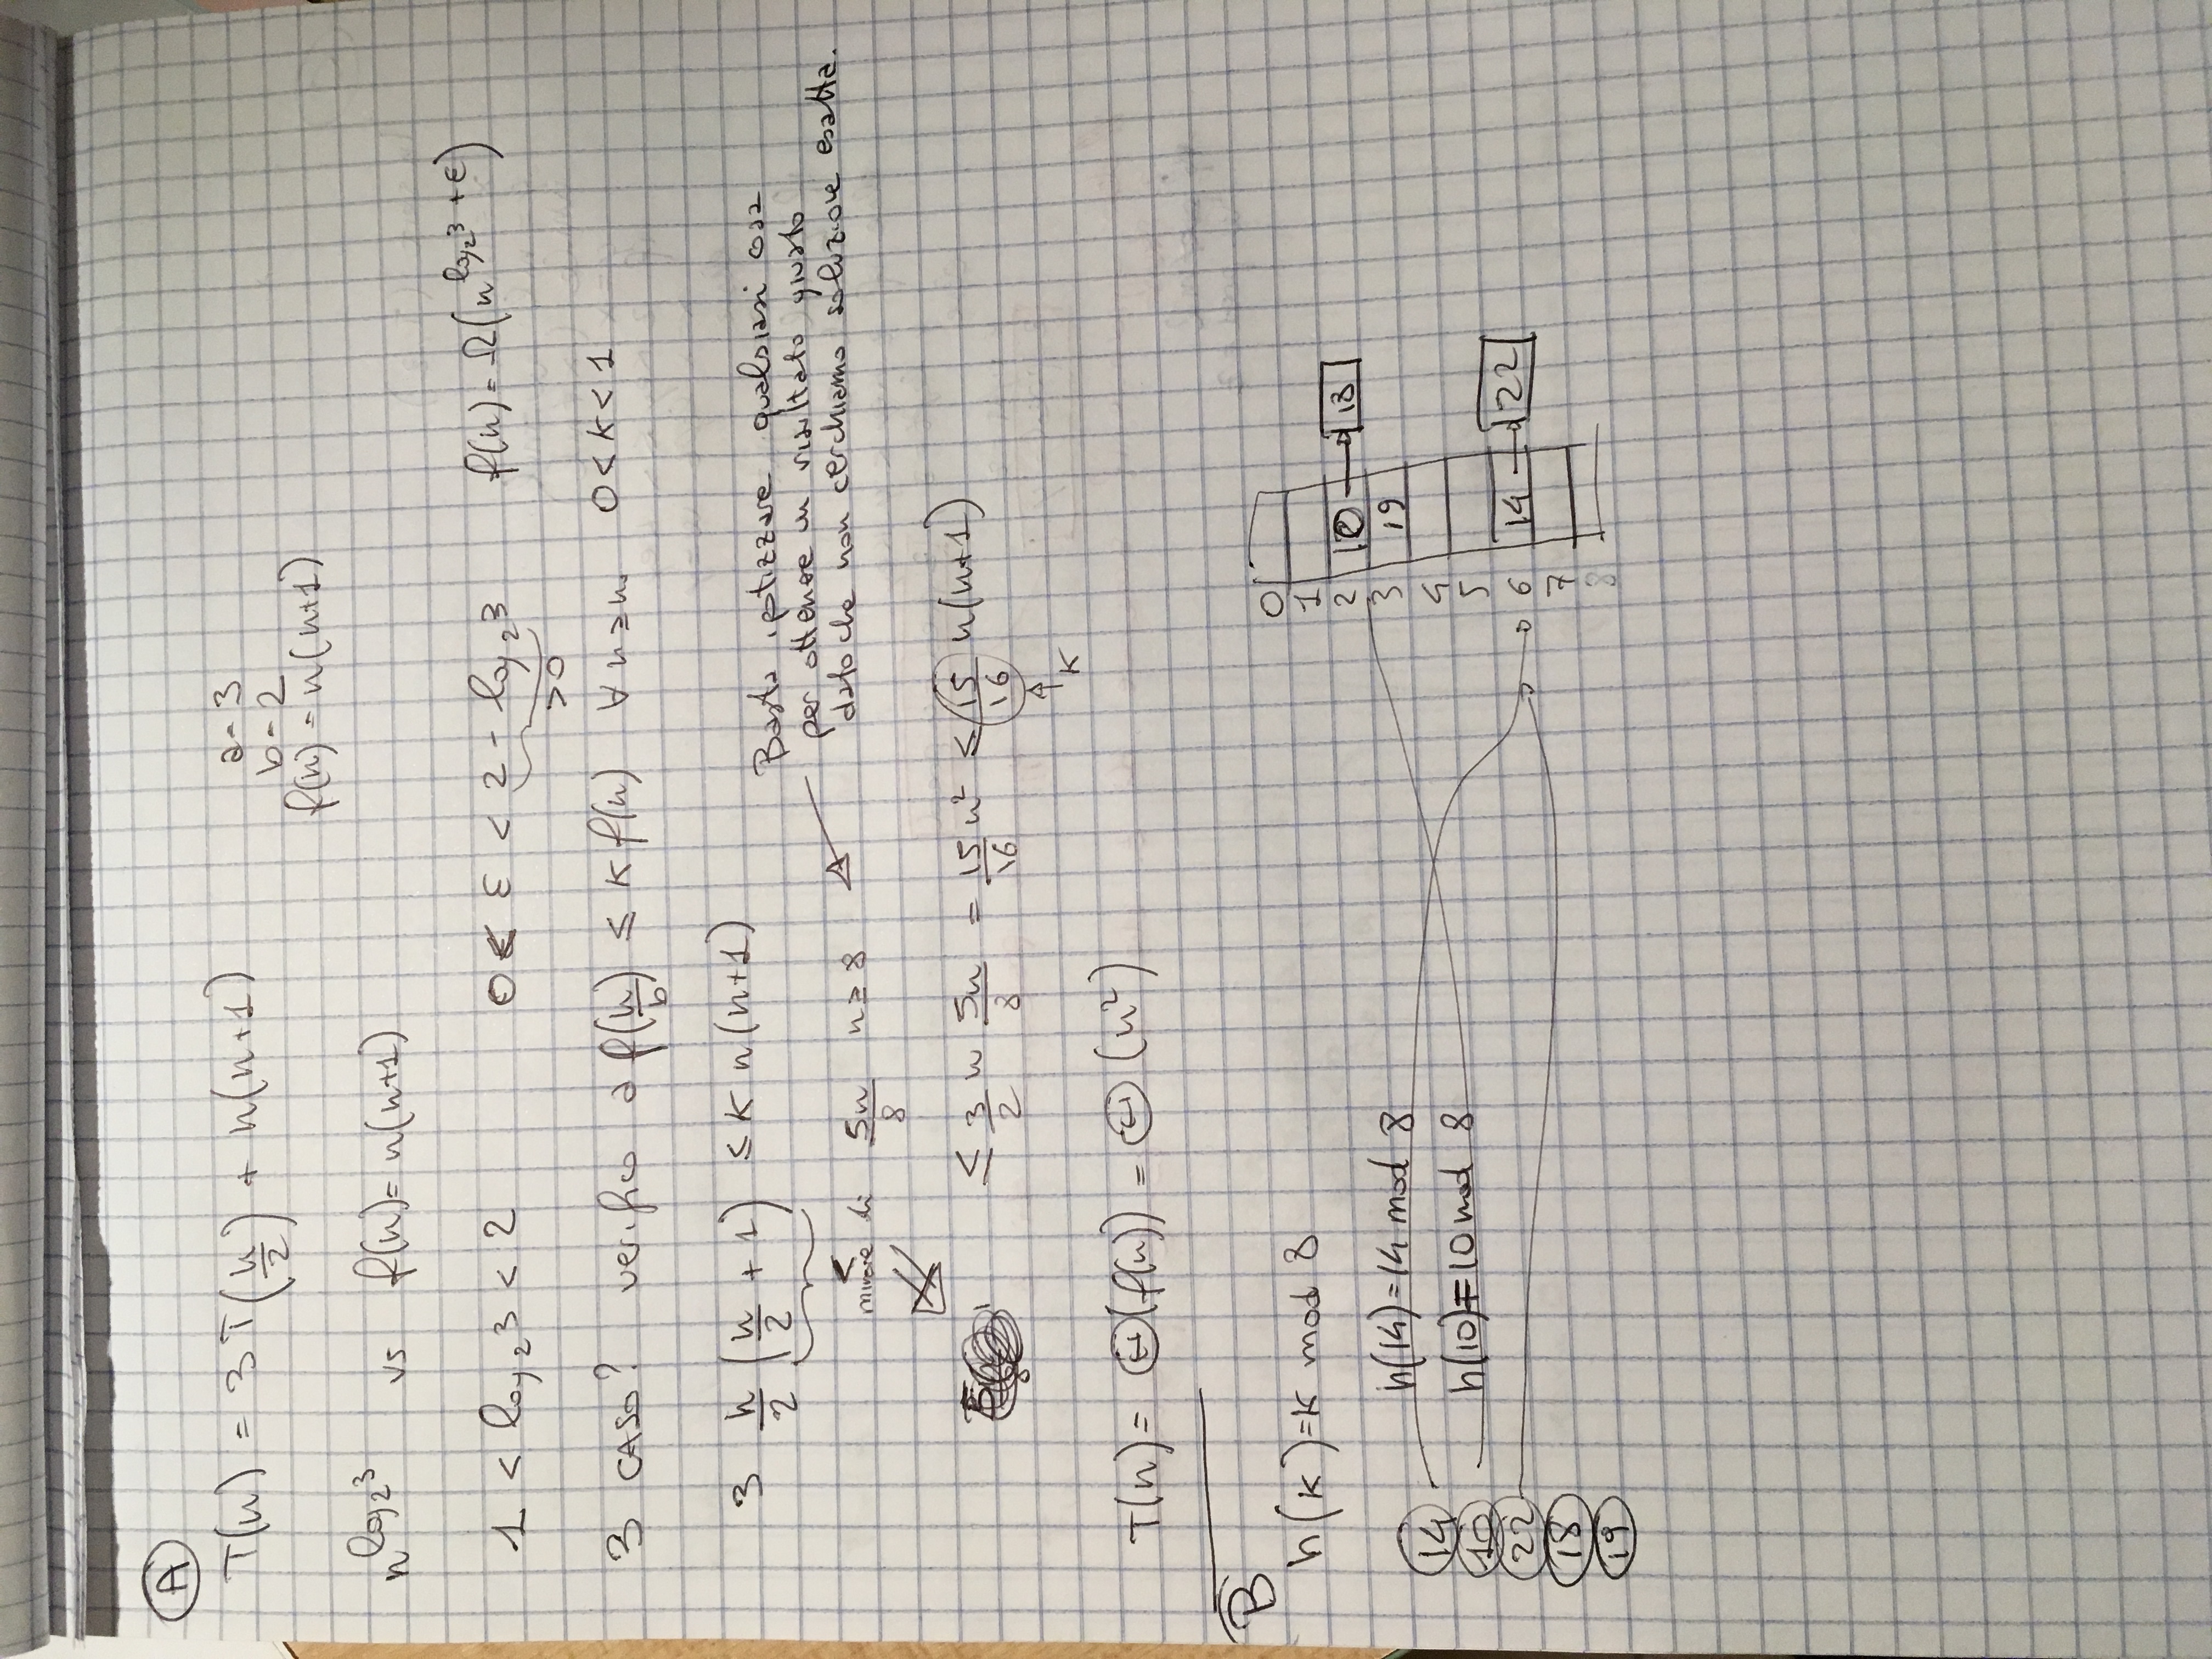 A
T(n) = 3T(n/2) + n(n+1)
a = 3
b = 2
f(n) = n(n+1)
n^log₂3 vs f(n) = n(n+1)
1 < log₂3 < 2 0 < ε < 2 - log₂3 f(n) = Ω(n^log₂3 + ε)
>0
3 CASO? verifico a f(n/b) ≤ K f(n) ∀ n ≥ n₀ 0 < K < 1
3 n/2 (n/2 + 1) ≤ K n(n+1)
Basta ipotizzare qualsiasi cosa
per ottenere un risultato giusto
dato che non cerchiamo soluzione esatta.
<
minore di 5n/8 n ≥ 8
≤ 3/2 n 5n/8 = 15/16 n² ≤ 15/16 n(n+1)
K
T(n) = Θ(f(n)) = Θ(n²)
B
h(K) = K mod 8
h(14) = 14 mod 8
h(10) = 10 mod 8
14
10
22
18
19
0
1
2 10 → 18
3 19
4
5
6 14 → 22
7
8